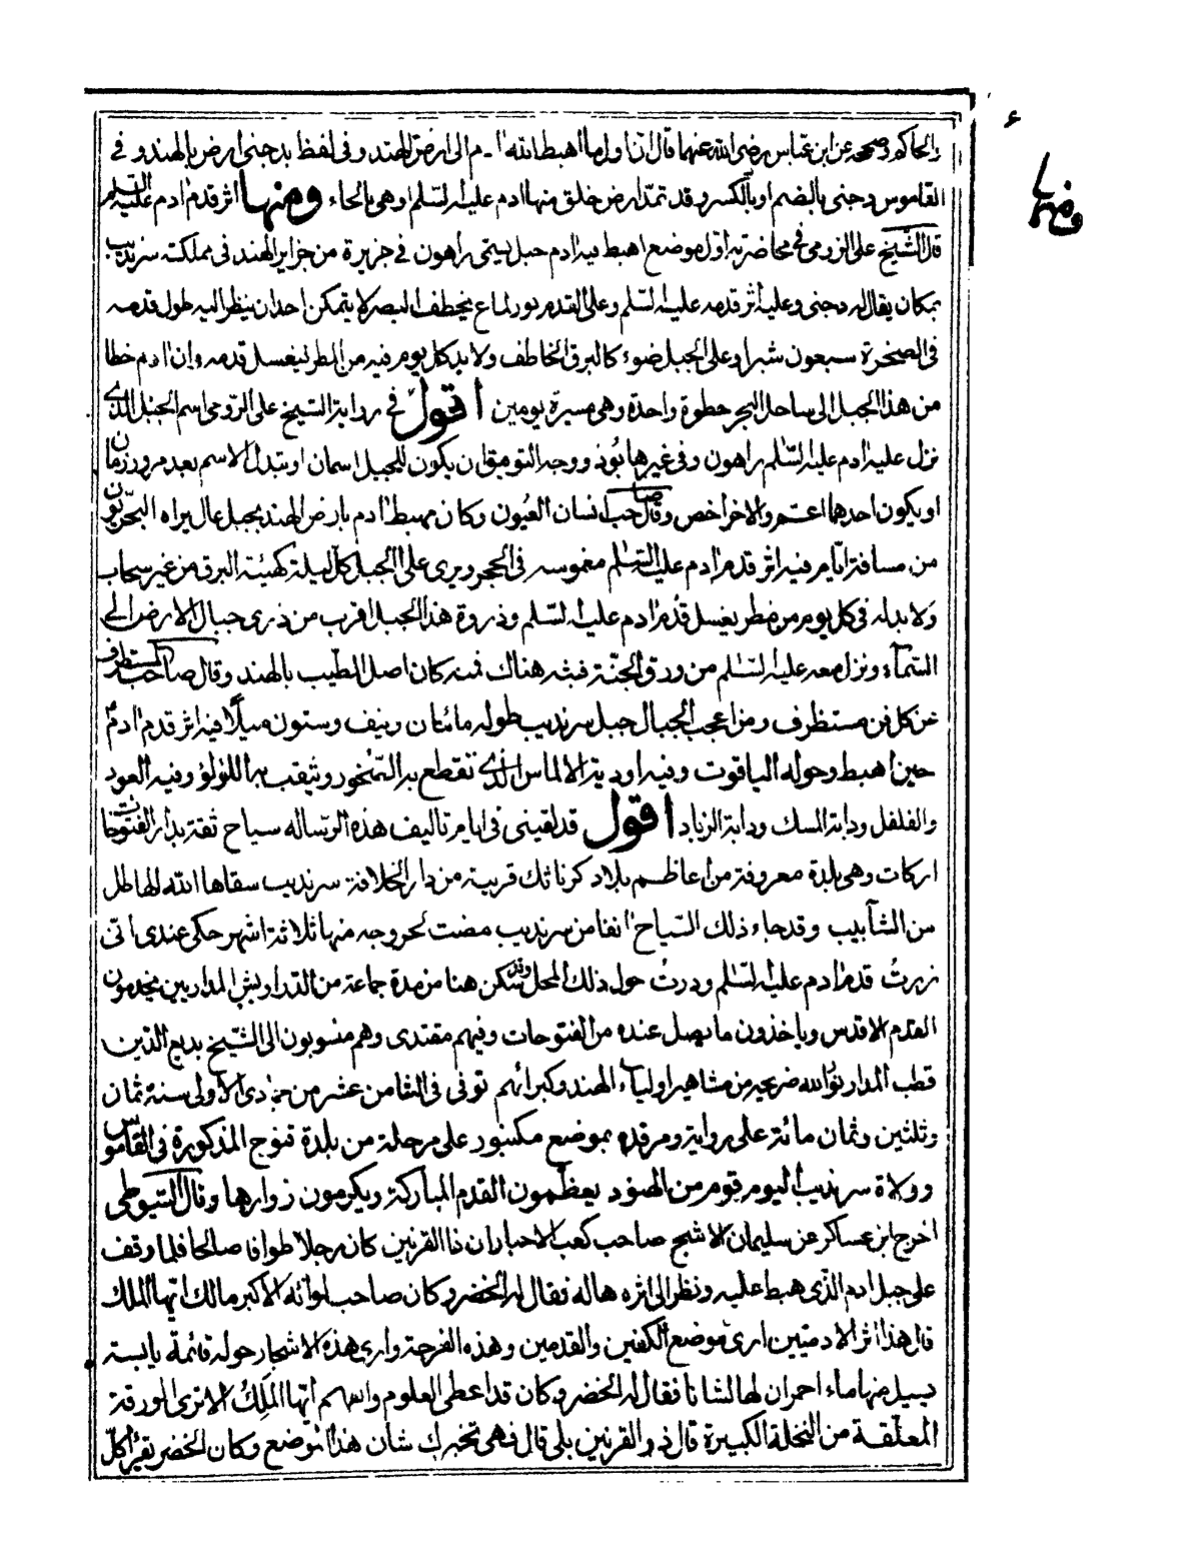 والحاكم وصححه عن ابن عباس رضى الله عنهما قال ان اول ما اهبط الله ادم الى ارض الهند وفى لفظ بدجنى ارض بالهند وفى
القاموس دجنى بالضم او بالكسر وقد تمد ارض خلق منها ادم عليه السلم او هى بالحاء ومنها اثر قدم ادم عليه السلم
قال الشيخ على الرومى فى محاضرته اول موضع اهبط فيه ادم جبل يسمى راهون فى جزيرة من جزاير الهند فى مملكته سرنديب
بمكان يقال له دجنى وعليه اثر قدمه عليه السلم وعلى القدم نور لماع يخطف البصر لا يتمكن احد ان ينظر اليه طول قدمه
فى الصخرة سبعون شبرا وعلى الجبل ضوء كالبرق الخاطف ولا بد كل يوم فيه من المطر ليغسل قدمه وان ادم خطا
من هذا الجبل الى ساحل البحر خطوة واحدة وهى مسيرة يومين اقول فى رواية الشيخ على الرومى اسم الجبل الذى
نزل عليه ادم عليه السلم راهون وفى غيرها نوذ ووجه التوفيق ان يكون للجبل اسمان او تبدل الاسم بعد مرور زمان
او يكون احدهما اعم والاخر اخص وقال صاحب انسان العيون وكان مهبط ادم بارض الهند بجبل عال يراه البحريون
من مسافة ايام فيه اثر قدم ادم عليه السلم مغموسه فى الحجر ويرى على الجبل كل ليلة كهيئة البرق من غير سحاب
ولا بد له فى كل يوم من مطر يغسل قدم ادم عليه السلم وذروة هذا الجبل اقرب من ذرى جبال الارض الى
السماء ونزل معه عليه السلم من ورق الجنة فبثه هناك فمنه كان اصل الطيب بالهند وقال صاحب المستطرف
من كل فن مستظرف ومن اعجب الجبال جبل سرنديب طوله مائتان ونيف وستون ميلا فيه اثر قدم ادم
حين اهبط وحوله الياقوت وفيه اودية الالماس الذى تقطع به الصخور وتثقب به اللؤلؤ وفيه العود
والفلفل ودابة المسك ودابة الزباد اقول قد لقينى فى ايام تاليف هذه الرساله سياح ثقة بدار الفتوحات
اركات وهى بلدة معروفة من اعاظم بلاد كرناتك قريبة من دار الخلافة سرنديب سقاها الله الهاطل
من الشآبيب وقد جاء ذلك السياح انفا من سرنديب مضت لخروجه منها ثلاثة اشهر حكى عندى انى
زرت قدم ادم عليه السلم ودرت حول ذلك المحل وقد سكن هنا من مدة جماعة من الدراويش المداريين يخدمون
القدم الاقدس وياخذون ما يصل عنده من الفتوحات وفيهم مقتدى وهم منسوبون الى الشيخ بديع الدين
قطب المدار نور الله ضريحه من مشاهير اولياء الهند وكبرائهم توفى فى الثامن عشر من جمادى الاولى سنة ثمان
وثلثين وثمان مائة على رواية ومرقده بموضع مكنپور على مرحلة من بلدة قنوج المذكورة فى القاموس
وولاة سرنديب اليوم قوم من الهنود يعظمون القدم المباركة ويكرمون زوارها وقال السيوطى
اخرج ابن عساكر عن سليمان الاشج صاحب كعب الاحبار ان ذا القرنين كان رجلا طوافا صالحا فلما وقف
على جبل ادم الذى هبط عليه ونظر الى اثره هاله فقال له الخضر وكان صاحب لوائه الاكبر مالك ايها الملك
قال هذا اثر الادميين ارى موضع الكفين والقدمين وهذه القرحة وارى هذه الاشجار حوله قائمة يابسة
يسيل منها ماء احمر ان لها لشانا فقال له الخضر وكان قد اعطى العلوم والفهم ايها الملك الا ترى الورقة
المعلقة من النخلة الكبيرة قال ذو القرنين بلى قال فهى تخبرك شان هذا الموضع وكان الخضر يقرأ كل
٦
ومنها